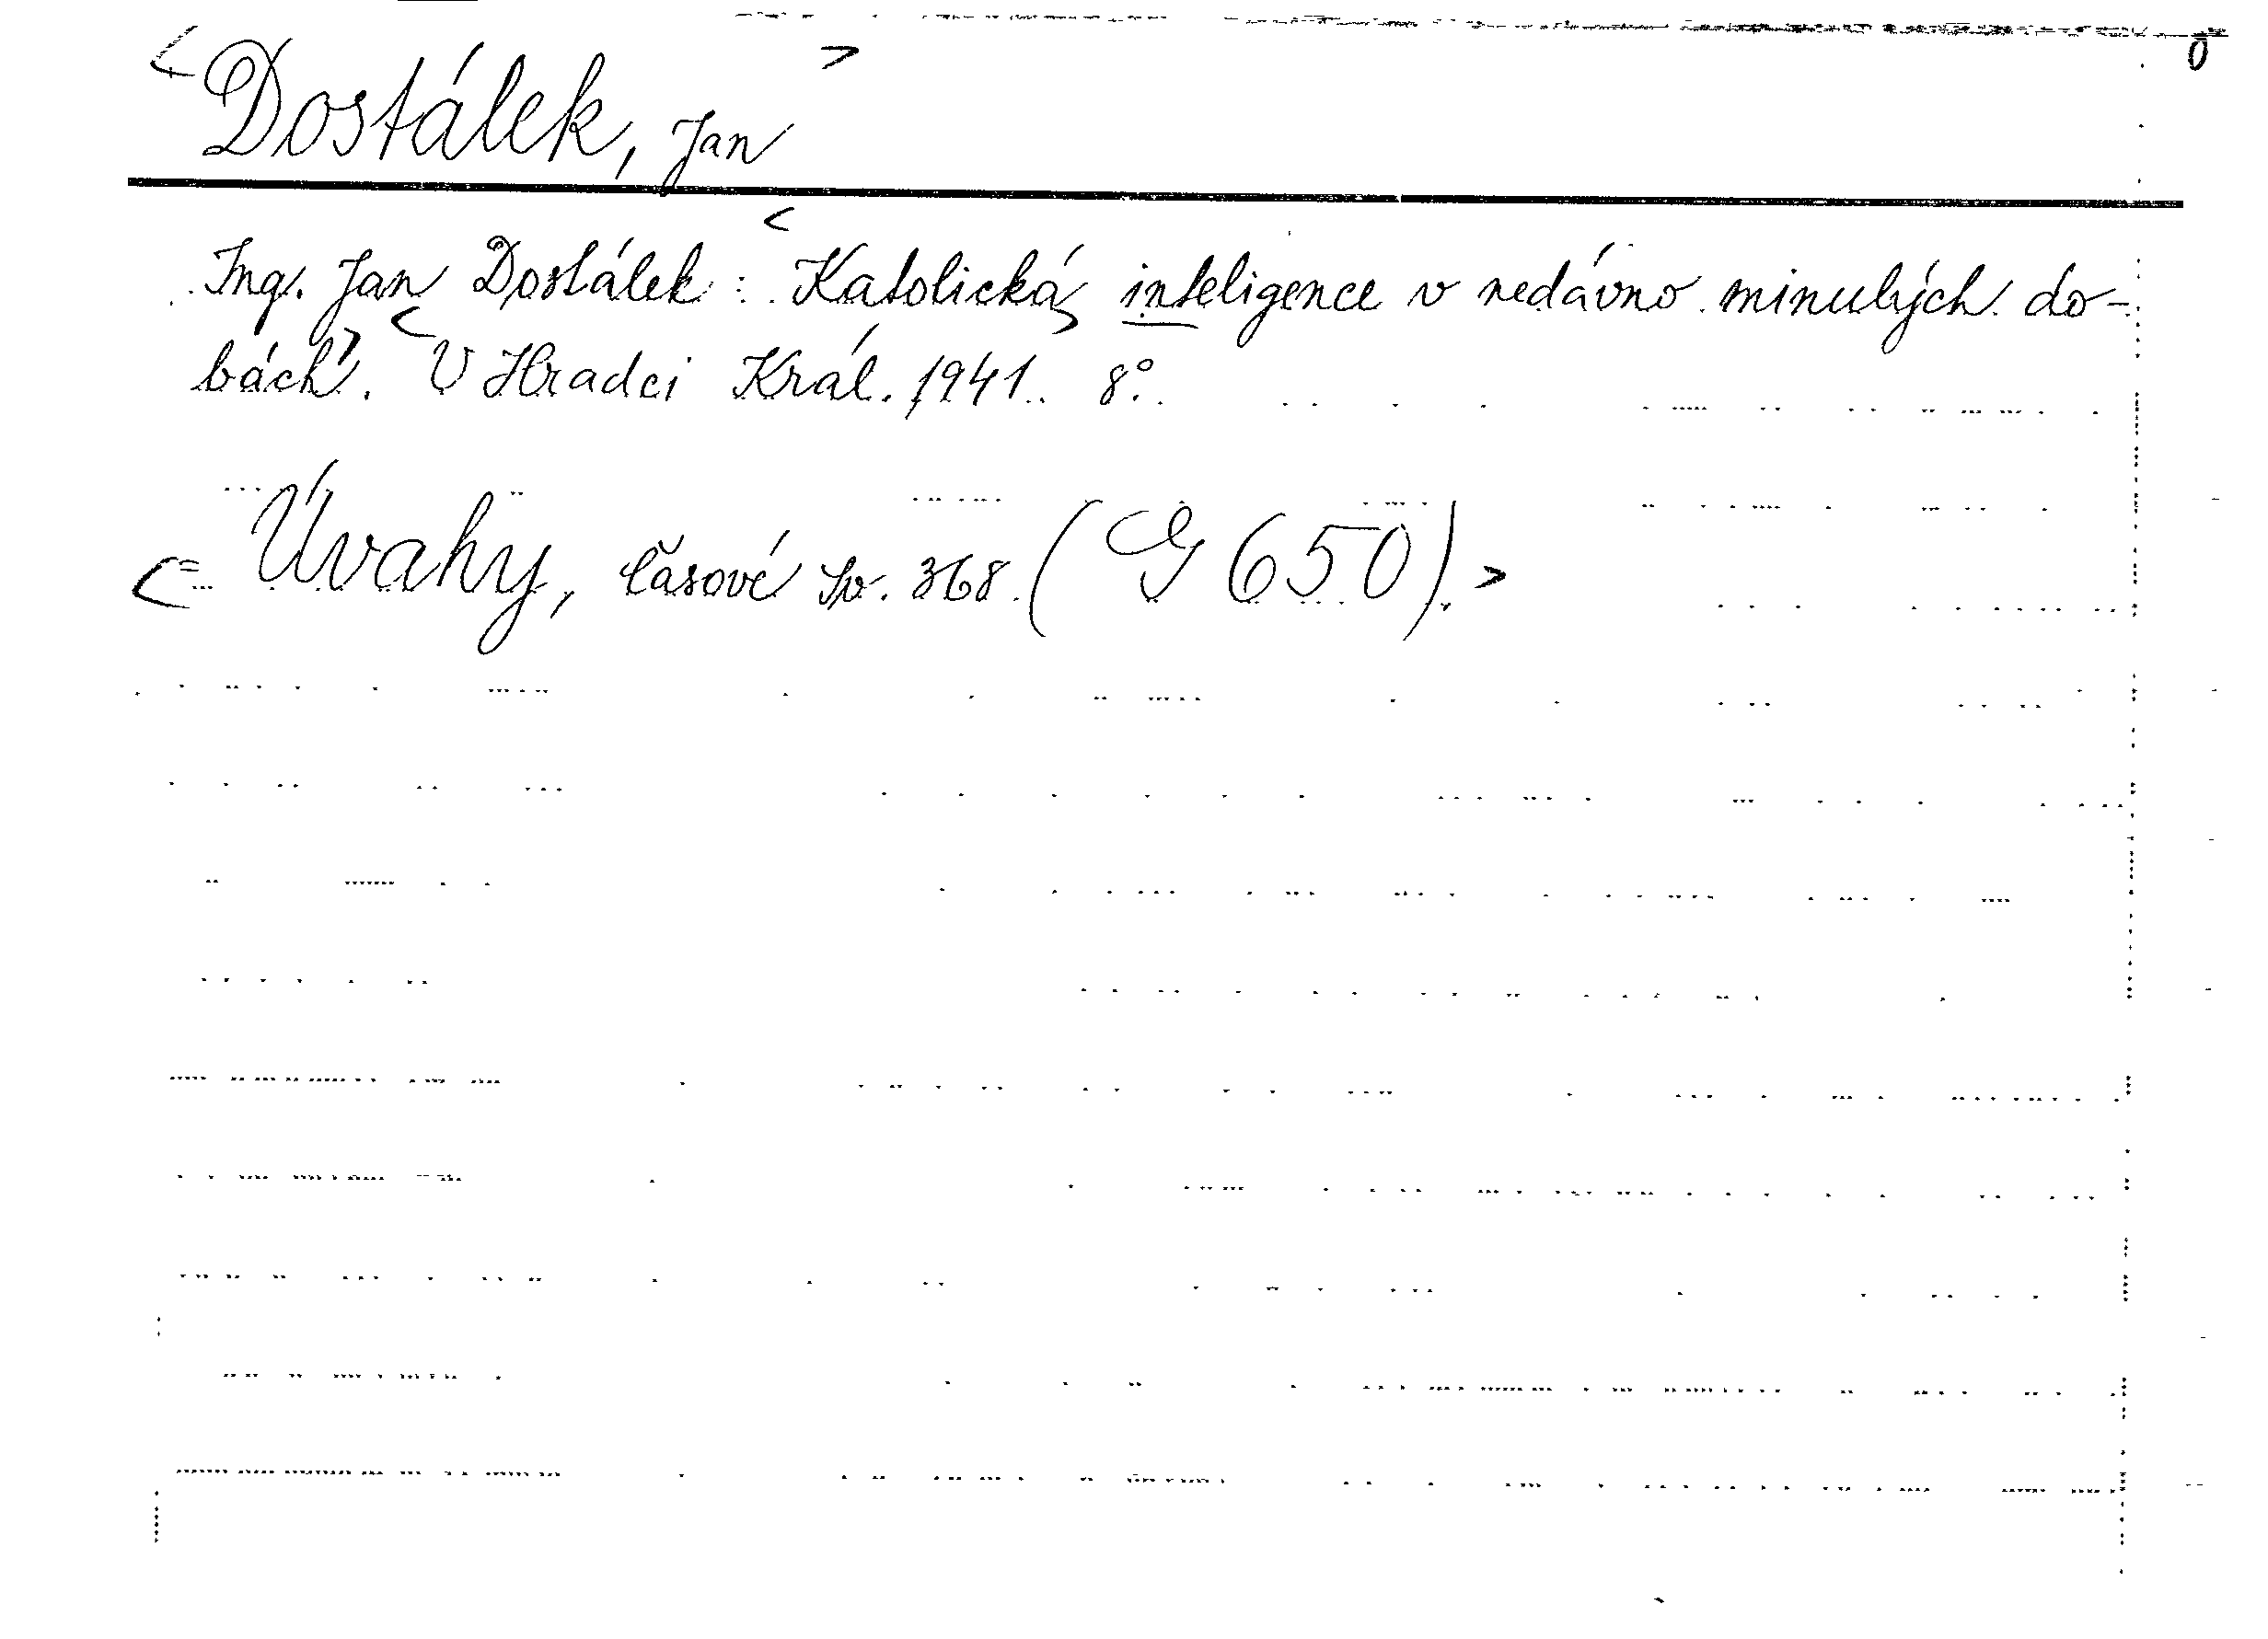 <Dostálek, Jan>
0
Ing. Jan Dostálek: <Katolická inteligence v nedávno minulých do-
bách>. <V Hradci Král. 1941. 8°.
<= Úvahy, časové sv. 368. (G 650).>